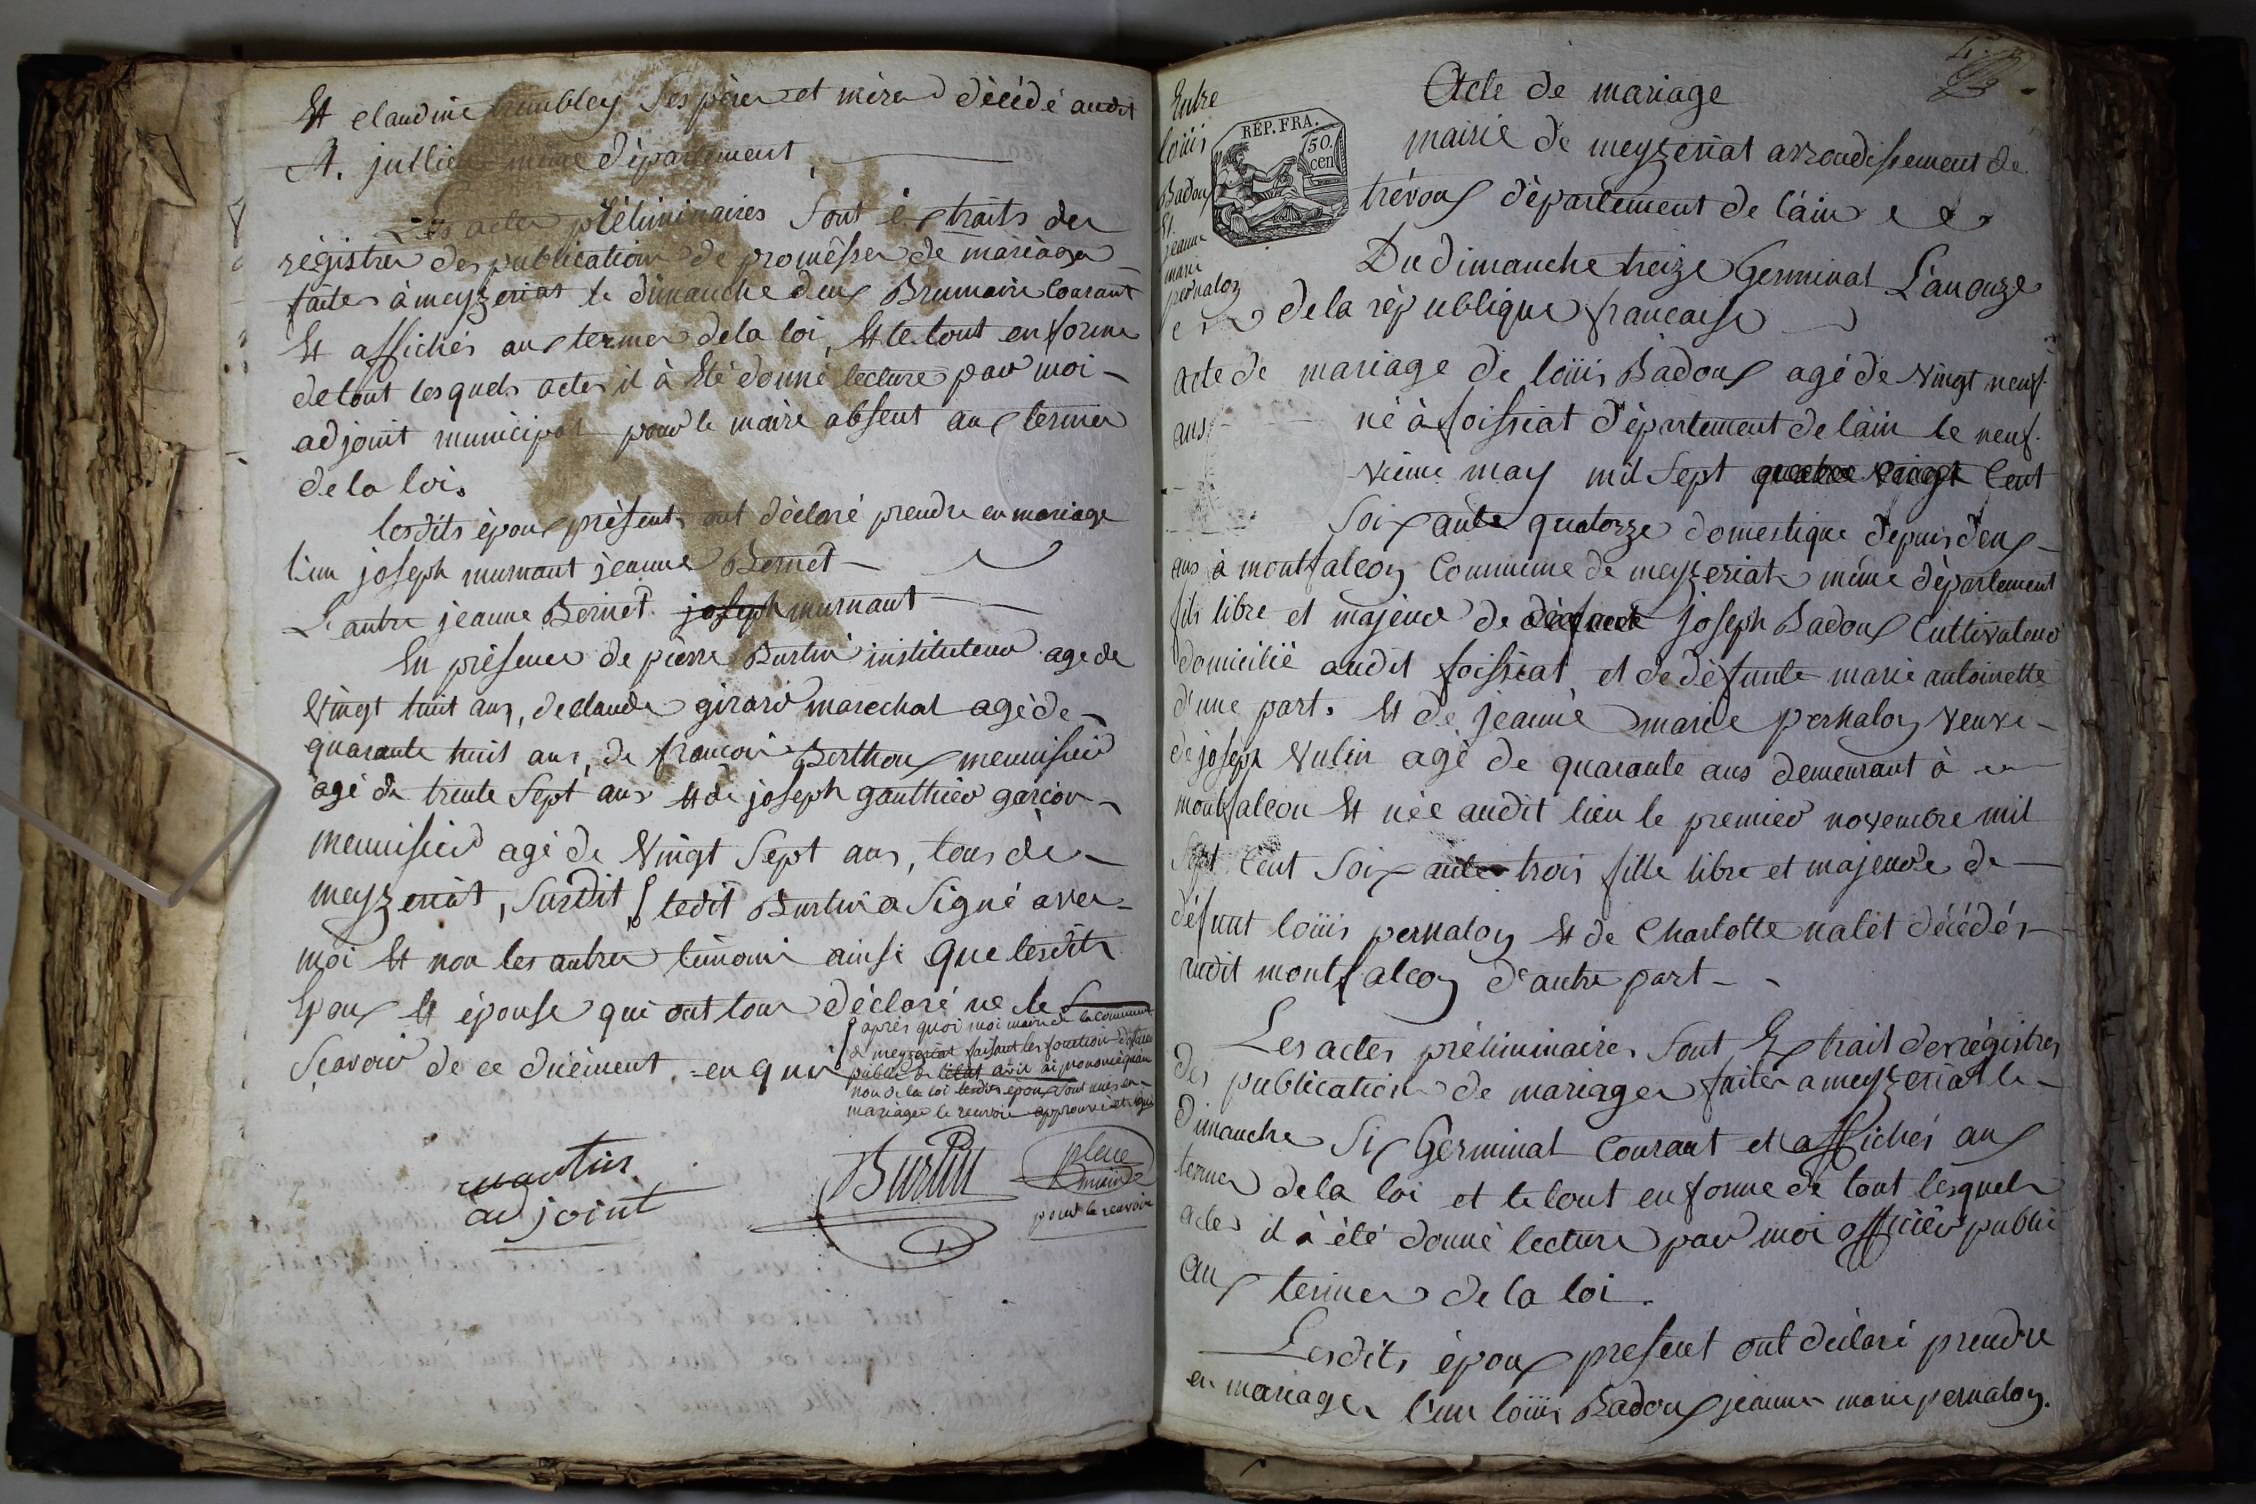 Et claudine trembley Ses père et mère décédé audit
St. jullien même département
Les actes préliminaires Sont Extraits des
régistres des publication de promesses de mariages
faites à meyzeriat le dimanche deux Brumaire Courant
Et affichés aux termes dela loi, Et le tout en forme
detout lesquels actes il à Eté donné lecture par moi
adjoint municipal pour le maire absent aux termes
de la loi.
lesdits époux présents ont déclaré prendre en mariage
l'un joseph murnant jeanne Bernet
L'autre jeanne Bernet joseph murnant
En présence de pierre Burtin instituteur age de
Vingt huit ans, de claude girard marechal agé de
quarante huit ans, de francois Berthoux menuisier
agé de trente Sept ans Et de joseph gauthier garçon
menuisier agé de Vingt Sept ans, tous de
meyzeriat, Surdit, ledit Burtin a Signé avec
moi Et non les autres temoins ainsi que lesdits
Epoux Et épouse qui ont tous déclaré ne le
Sçavoir de ce duement en quis
après quoi moi maire de la commune
de meyzeriat faisant les fonction d'officier
public de l'état civil ai prononcé qu'au
nom de la loi lesdits epoux sont unis en
mariage le renvoi approuvé et signé
martin
adjoint
Burtin
place
maire
pour le renvoi
Entre
loüis
Badoux
Et
jeanne
marie
pernalon
RÉP. FRA.
50.
cen
Acte de mariage
mairie de meyzeriat arrondissement de
trévoux département de l'ain
Du dimanche treize Germinal L'an onze
de la république francaise
acte de mariage de loüis Badoux agé de Vingt neuf
ans, né à foissiat département de l'ain le neuf
vieme may mil Sept quatre vingt Cent
Soixante quatorze domestique depuis deux
ans à montfalcon Commune de meyzeriat même département
fils libre et majeur de défunt joseph Badoux Cultivateur
domicilié audit foissiat et de défunte marie antoinette
d'une part. Et de jeanne marie pernalon veuve
de joseph Vulin agé de quarante ans demeurant à
montfalcon Et née audit lieu le premier novembre mil
Sept Cent Soixante trois fille libre et majeure de
défunt loüis pernalon Et de Charlotte nalet décédés
audit montfalcon d'autre part
Les actes préliminaires Sont Extrait des régistres
des publication de mariages faites a meyzeriat le
dimanche Six Germinal Courant et affichés aux
termes dela loi et le tout en forme de tout lesquels
actes il à été donné lecture par moi officier public
aux termes de la loi.
Lesdits époux present ont déclaré prendre
en mariage l'un loüis Badoux jeanne marie pernalon.